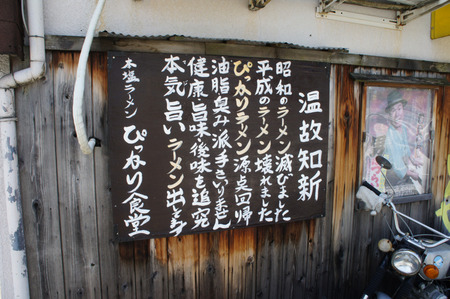 温故知新
昭和のラーメン滅びました
平成のラーメン壊れました
ぴっかりラーメン源点回帰
油脂臭み派手さいりません
健康旨味後味を追究
本気旨いラーメン出とるぞ
本塩ラーメン
ぴっかり食堂